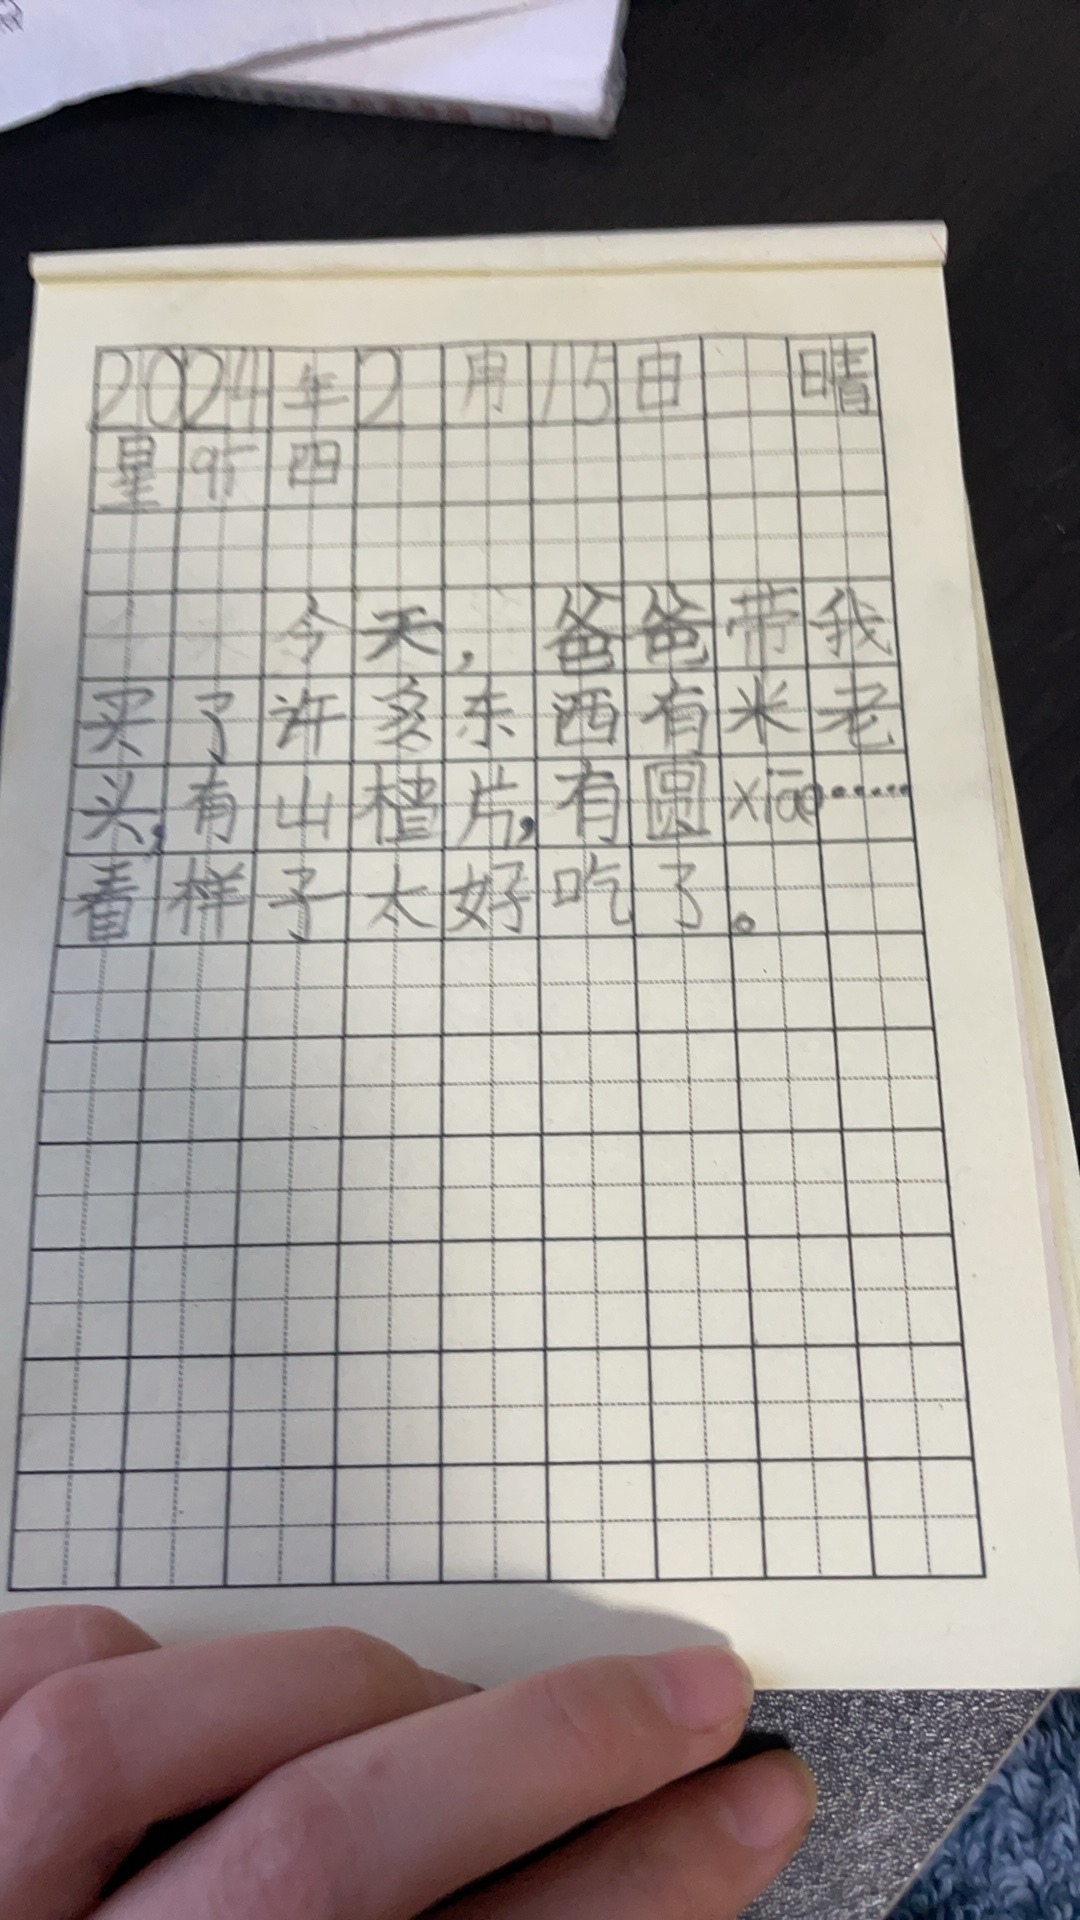 2024年2月15日 晴
星期四
今天，爸爸带我
买了许多东西有米老
头，有山楂片，有圆xiāo……
看样子太好吃了。